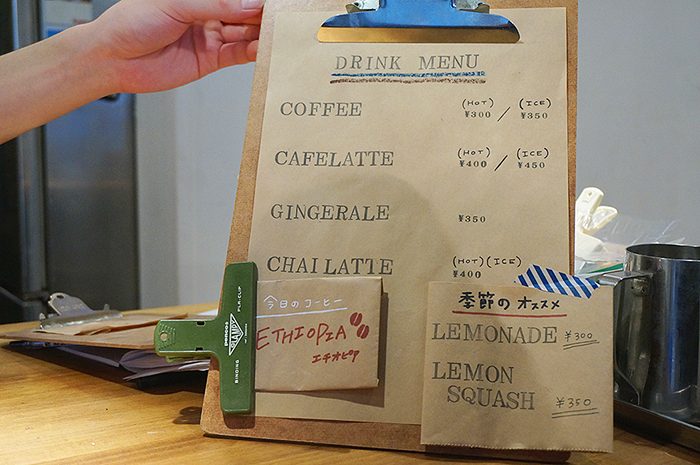 DRINK MENU
COFFEE (HOT) ¥300 / (ICE) ¥350
CAFELATTE (HOT) ¥400 / (ICE) ¥450
GINGERALE ¥350
CHAI LATTE (HOT) (ICE) ¥400
今日のコーヒー
ETHIOPIA
エチオピア
季節のオススメ
LEMONADE ¥300
LEMON
SQUASH ¥350
PLA-CLIP
CLAMPY
BINDING